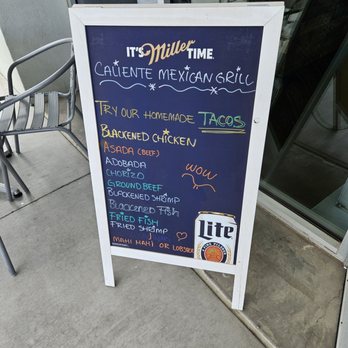 IT'S Miller TIME
CALIENTE MEXICAN GRILL
TRY OUR HOMEMADE TACOS
BLACKENED CHICKEN
ASADA (BEEF)
ADOBADA
CHORIZO
GROUND BEEF
BLACKENED SHRIMP
BLACKENED FISH
FRIED FISH
FRIED SHRIMP
MAHI MAHI OR LOBSTER
WOW
Lite